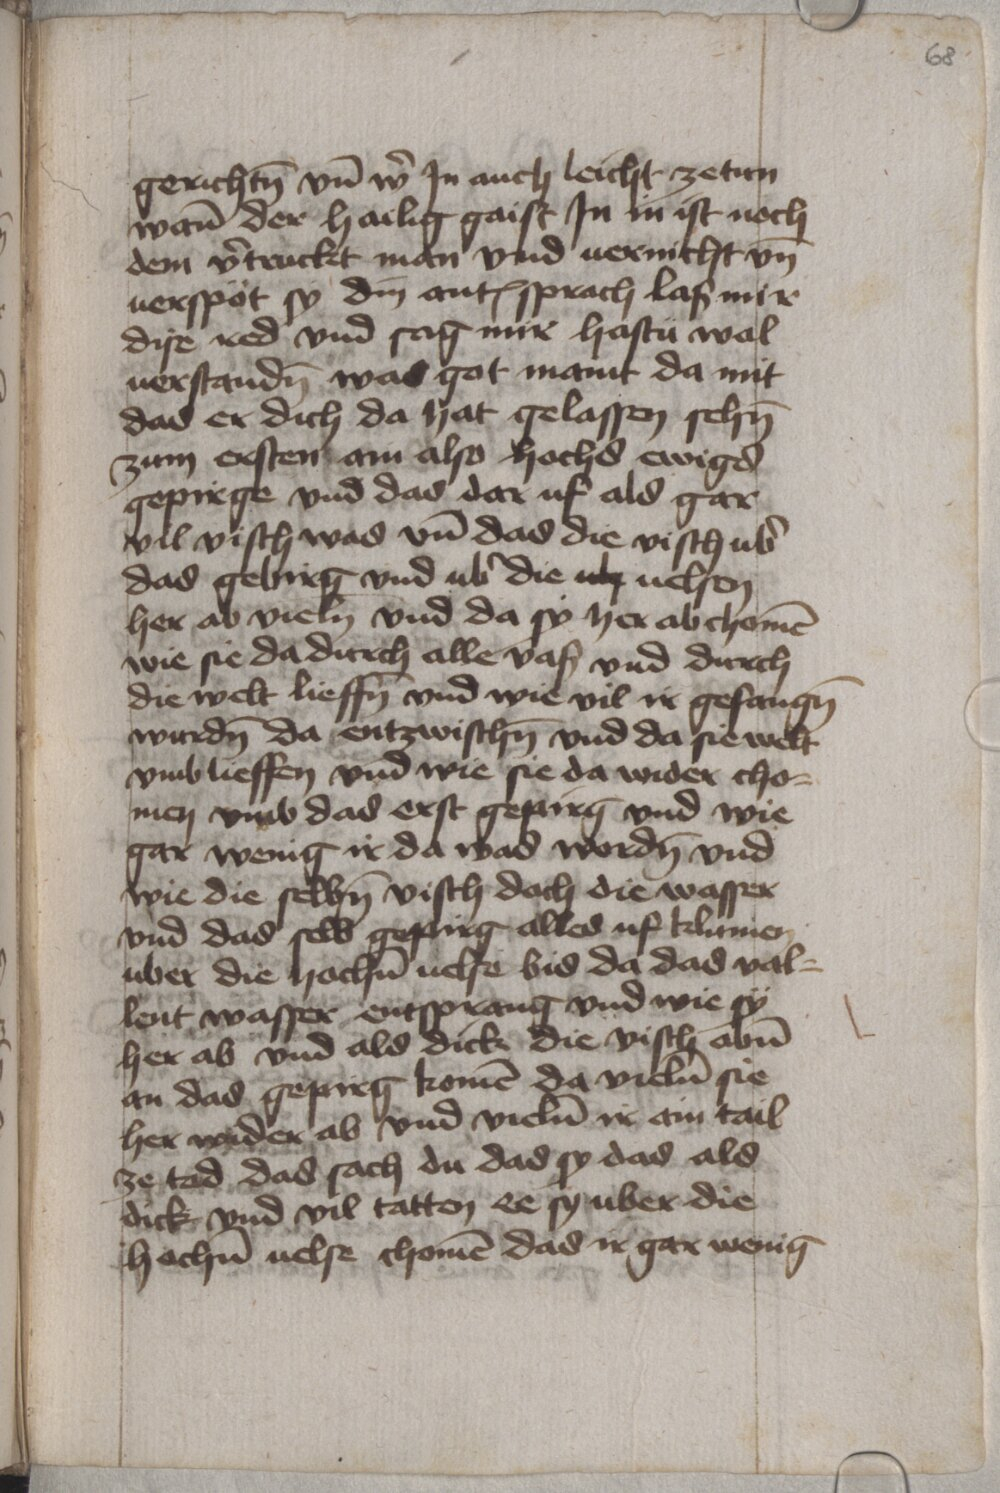 68
gerichtn̄ vn̄ w̾ Jn auch leicht zetun
wan̄ der hailig gaist Jn in ist noch
dem v̾truckt man vnd uernicht vn̄
uerspöt sy Din̄ antsprach laß mir
dise red vnd sag mir hastu wol
uerstandn̄ was got maint da mit
das er dich da hat gelassen sehn̄
zum ersten ain also hochs ewigs
gepirge vnd das dar uf als gar
vil visch was vn̄ das die visch ub̾
das gebirg vnd ub̾ die uelsen
her ab vieln̄ vnd da sy her ab chomē
wie sie da durch alle vaß vnd durch
die welt lieffn̄ vnd wie vil ir gefangn̄
wurdn̄ da entzwischn̄ vnd da sie welt
vmb lieffen vnd wie sie da wider cho=
men vmb das erst gepirg vnd wie
gar wenig ir da was wordn̄ vnd
wie die selbn̄ visch doch die wasser
vnd das selb gepirg alles uf klumen
uber die hochn̄ uelse bis da das val=
lent wasser entsprang vnd wie sy
her ab vnd als dick die visch obn̄
an das gepirg komē da vieln̄ sie
her wider ab vnd vieln̄ ir ain tail
ze tod das sach du das sy das als
dick vnd vil tatten ee sy uber die
hochn̄ uelse chomē das ir gar wenig